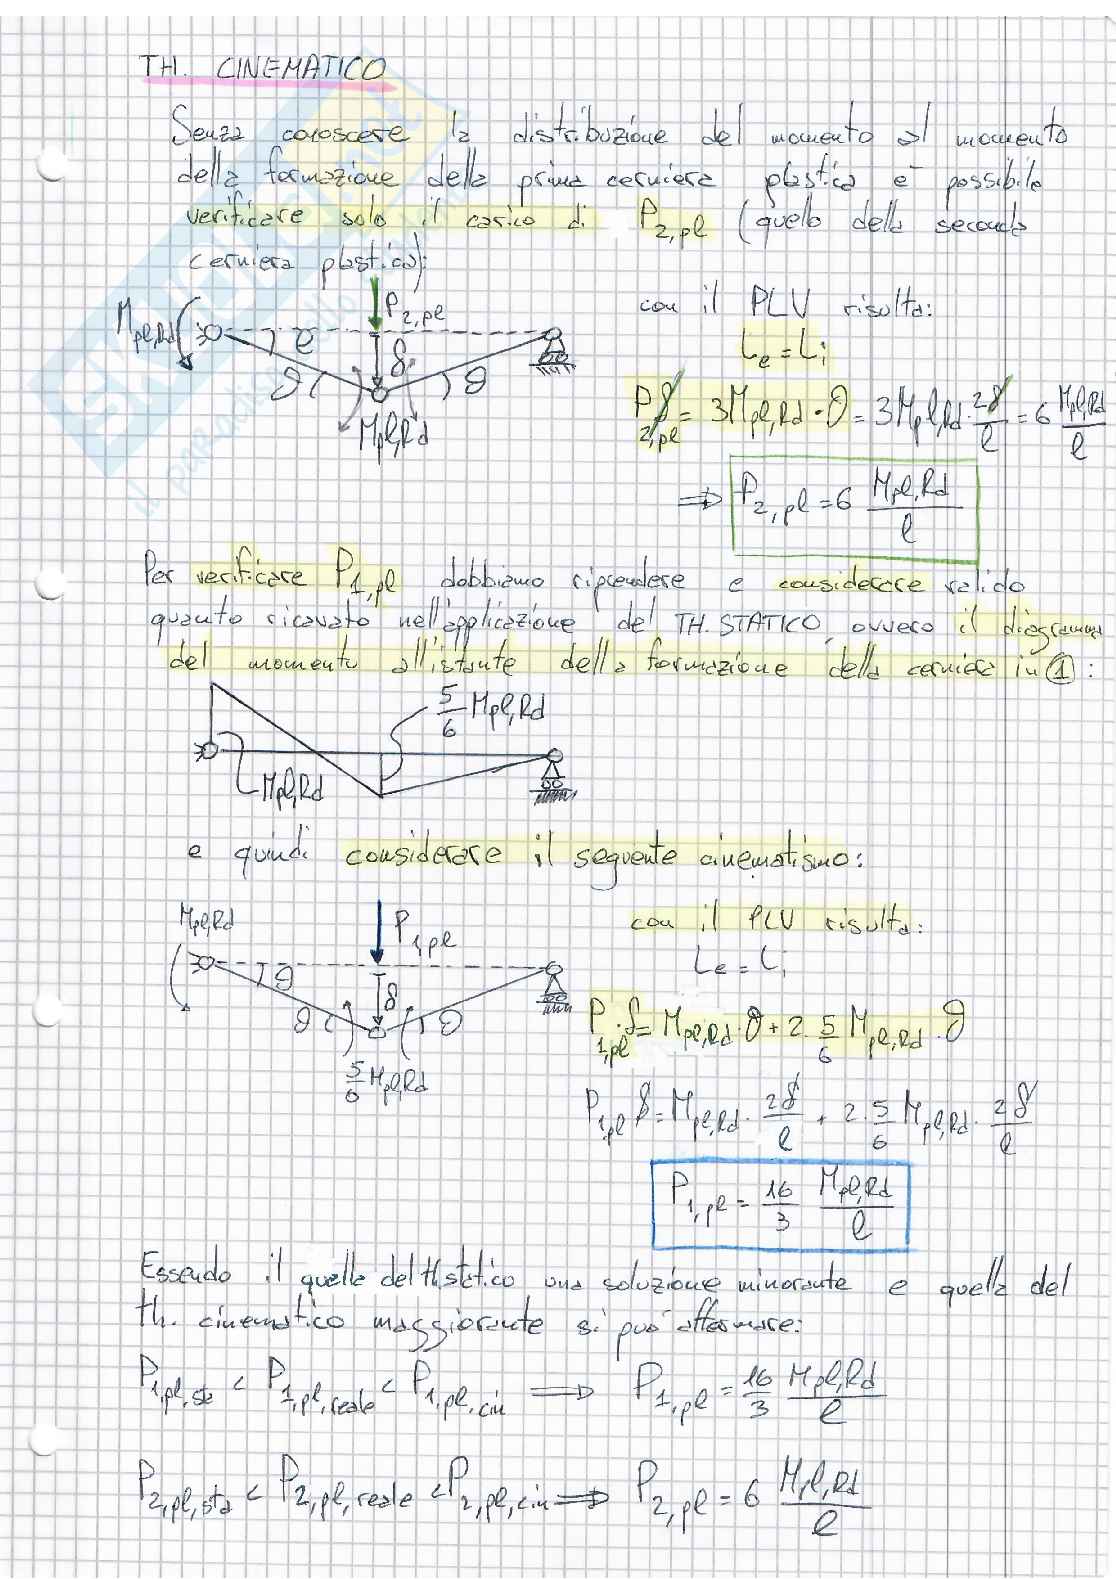 TH. CINEMATICO
Senza conoscere la distribuzione del momento al momento
della formazione della prima cerniera plastica è possibile
verificare solo il carico di P2,pl (quello della seconda
cerniera plastica):
Mpl,Rd
P2,pl
δ
ϑ
ϑ
ϑ
Mpl,Rd
con il PLV risulta:
Le = Li
P2,pl δ = 3Mpl,Rd · ϑ = 3Mpl,Rd · 2δ/l = 6 Mpl,Rd/l
⇒ P2,pl = 6 Mpl,Rd/l
Per verificare P1,pl dobbiamo riprendere e considerare valido
quanto ricavato nell'applicazione del TH. STATICO, ovvero il diagramma
del momento all'istante della formazione della cerniera in 1:
5/6 Mpl,Rd
Mpl,Rd
e quindi considerare il seguente cinematismo:
Mpl,Rd
P1,pl
δ
ϑ
ϑ
ϑ
5/6 Mpl,Rd
con il PLV risulta:
Le = Li
P1,pl · δ = Mpl,Rd · ϑ + 2 · 5/6 Mpl,Rd · ϑ
P1,pl δ = Mpl,Rd · 2δ/l + 2 · 5/6 Mpl,Rd · 2δ/l
P1,pl = 16/3 Mpl,Rd/l
Essendo il quella del th. statico una soluzione minorante e quella del
th. cinematico maggiorante si può affermare:
P1,pl,sta < P1,pl,reale < P1,pl,cin ⇒ P1,pl = 16/3 Mpl,Rd/l
P2,pl,sta < P2,pl,reale < P2,pl,cin ⇒ P2,pl = 6 Mpl,Rd/l